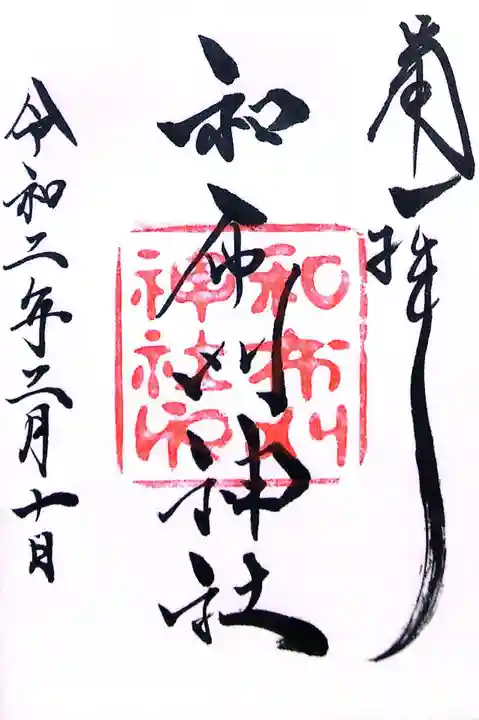 奉拝
和布刈神社
和布刈
神社印
令和二年二月十日